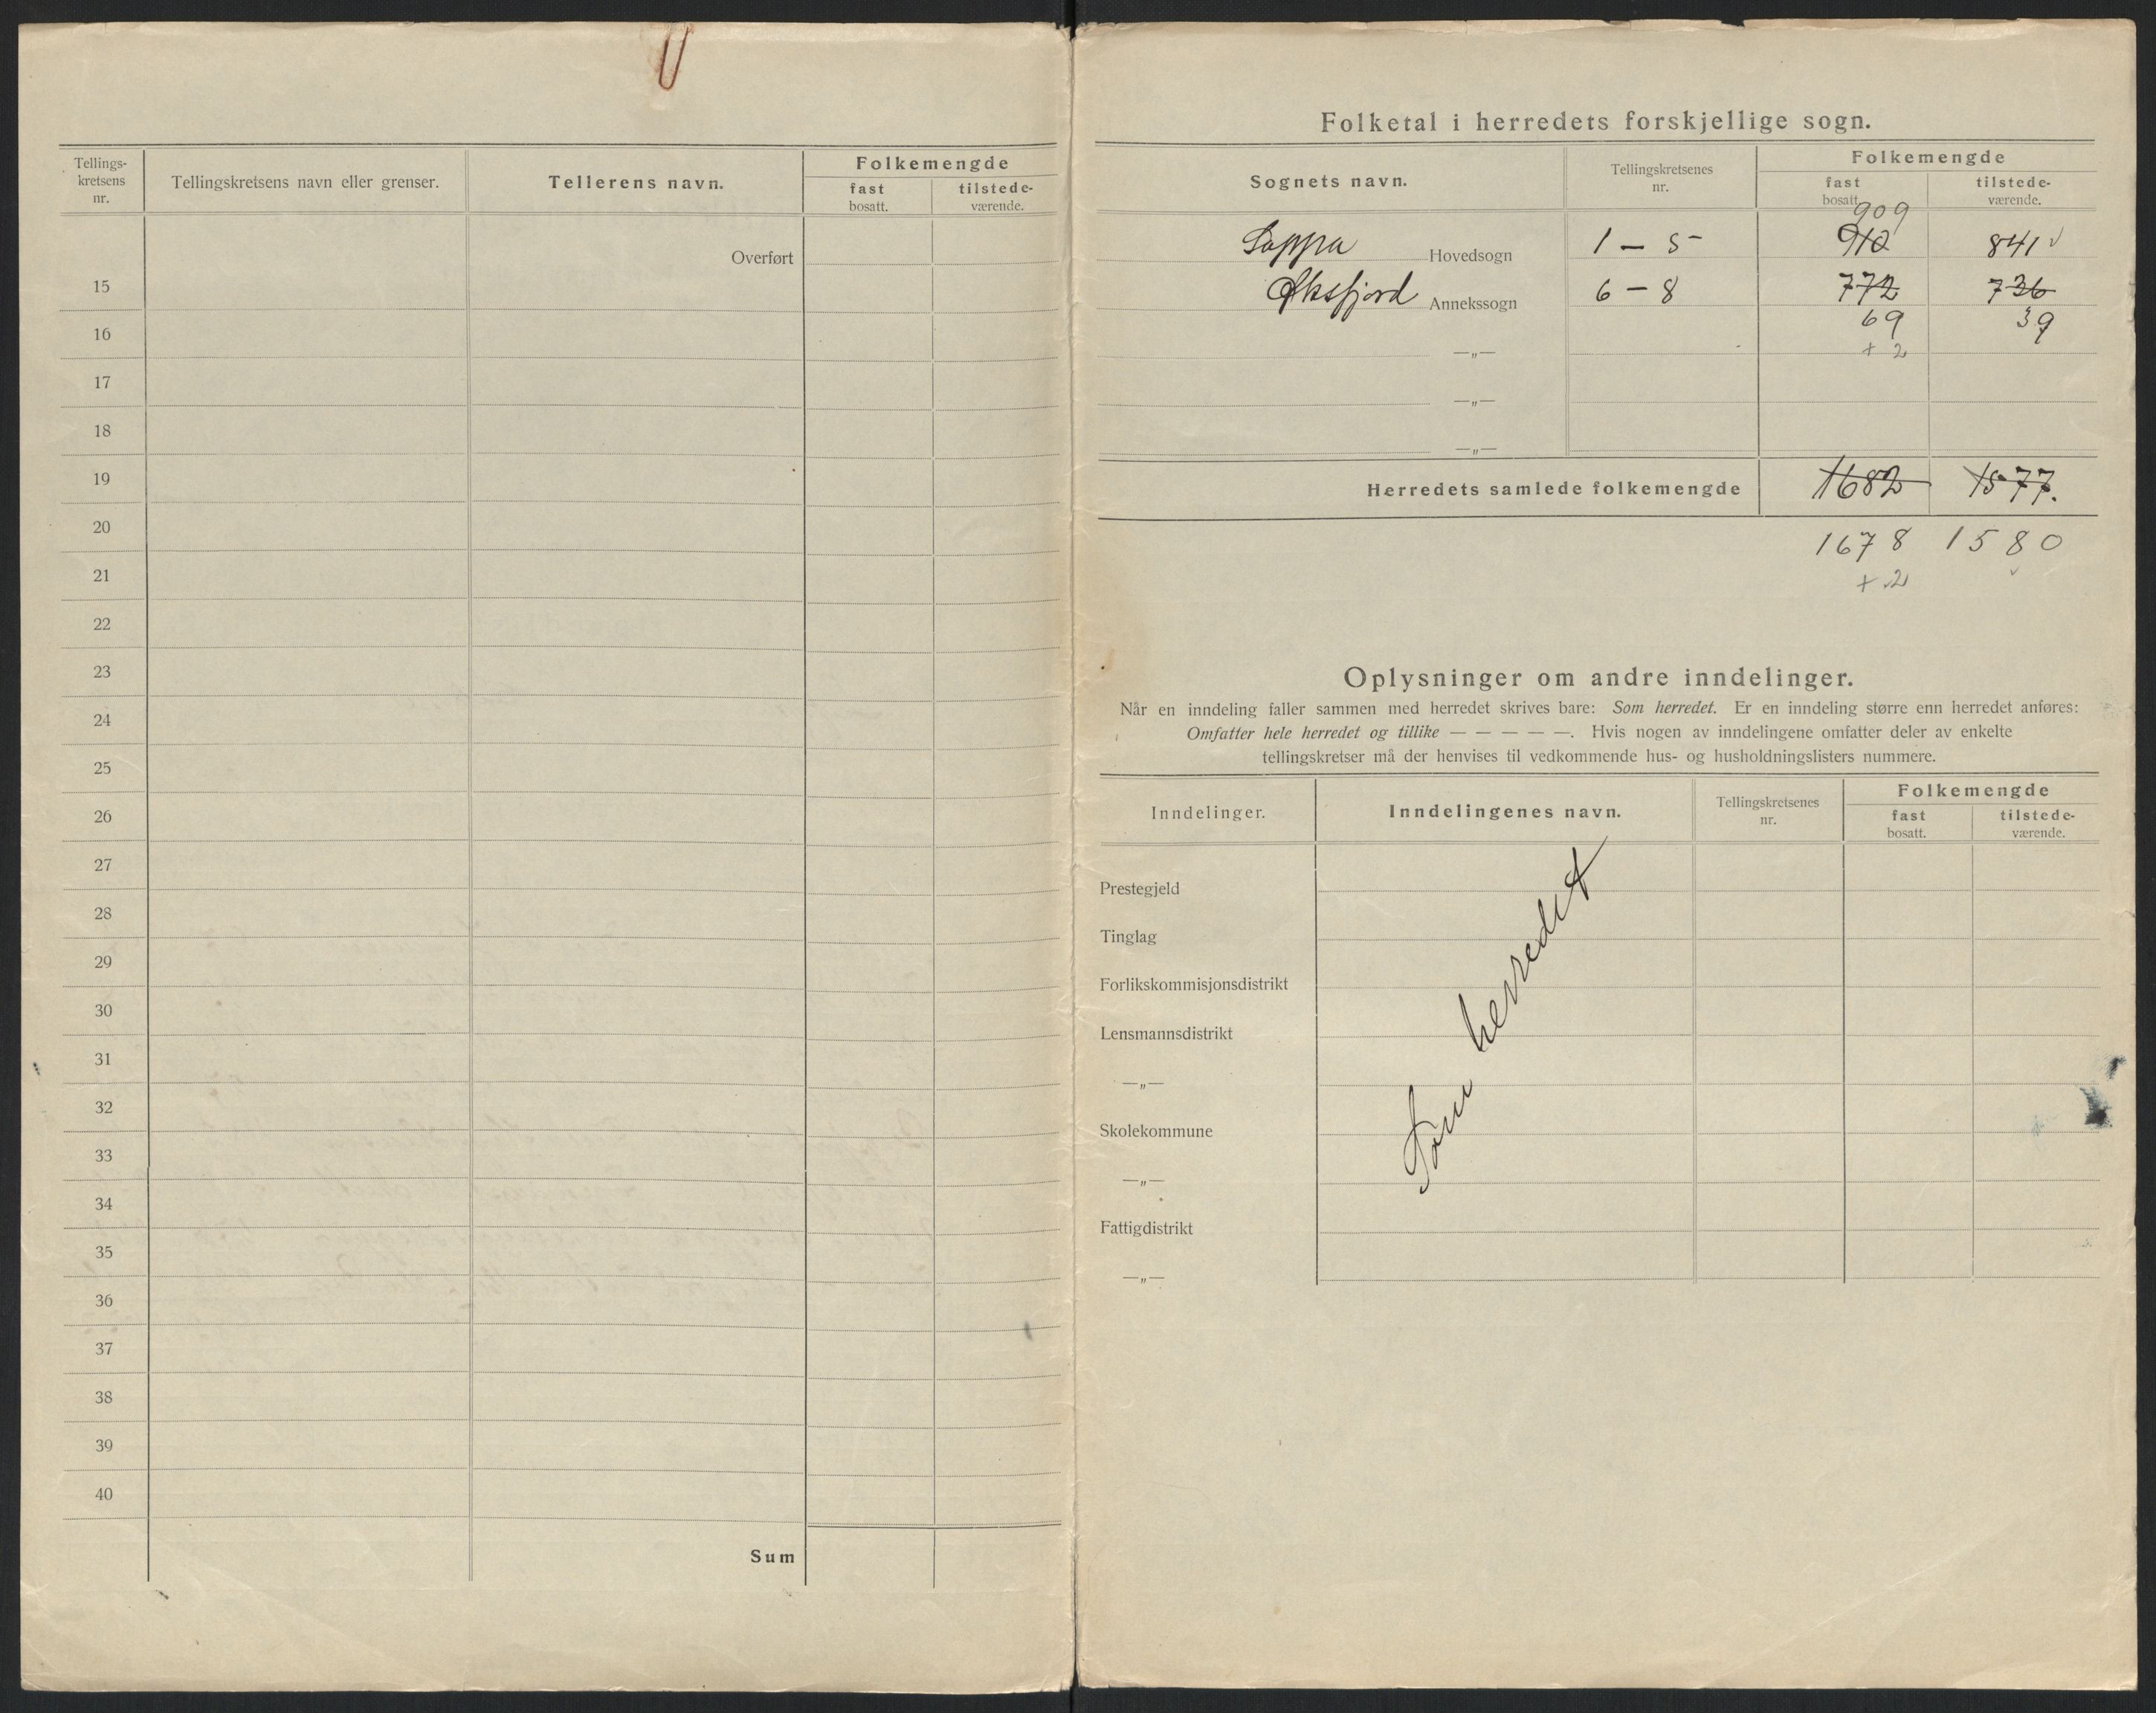 Tellings-
kretsens
nr.
Tellingskretsens navn eller grenser.
Tellerens navn.
Folkemengde
fast
bosatt.
tilstede-
værende.
Overført
15
16
17
18
19
20
21
22
23
24
25
26
27
28
29
30
31
32
33
34
35
36
37
38
39
40
Sum
Folketal i herredets forskjellige sogn.
Sognets navn.
Tellingskretsenes
nr.
Folkemengde
fast
bosatt.
tilstede-
værende.
909
Loppa Hovedsogn 1 – 5 910 841
Øksfjord Annekssogn 6 – 8 772 736
69 39
—„— + 2
—„—
—„—
Herredets samlede folkemengde 1682 1577.
1678 1580
+ 2
Oplysninger om andre inndelinger.
Når en inndeling faller sammen med herredet skrives bare: Som herredet. Er en inndeling større enn herredet anføres:
Omfatter hele herredet og tillike — — — — —. Hvis nogen av inndelingene omfatter deler av enkelte
tellingskretser må der henvises til vedkommende hus- og husholdningslisters nummere.
Inndelinger.
Inndelingenes navn.
Tellingskretsenes
nr.
Folkemengde
fast
bosatt.
tilstede-
værende.
Prestegjeld
Tinglag
Forlikskommisjonsdistrikt
Lensmannsdistrikt
—„—
Skolekommune
—„—
Fattigdistrikt
—„—
Som herredet